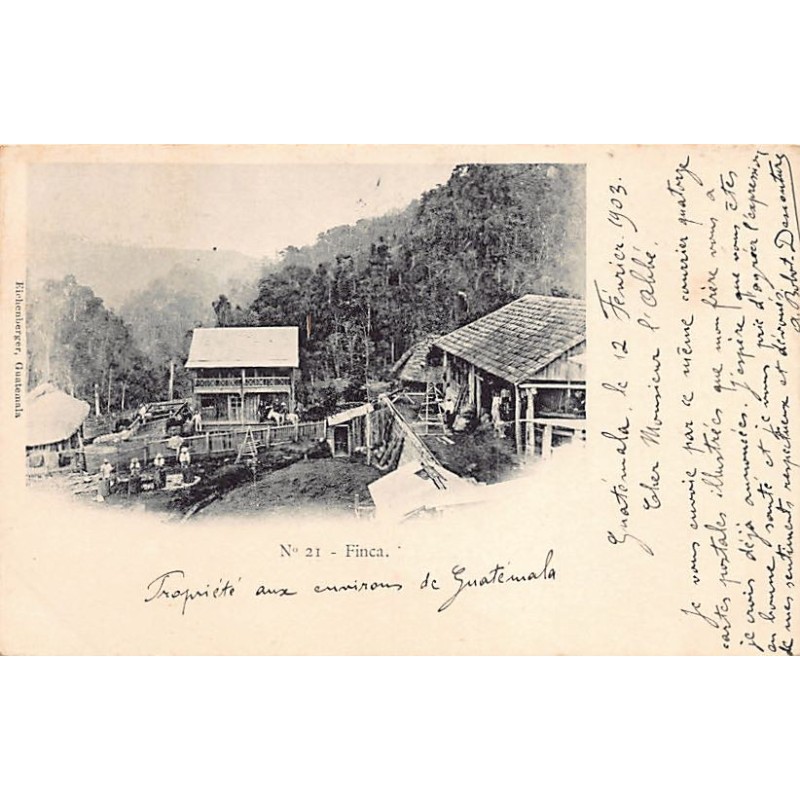 Eichenberger, Guatemala
Nº 21 - Finca.
Propriété aux environs de Guatémala
Guatémala, le 12 Février 1903.
Cher Monsieur l'Abbé,
Je vous envoie par ce même courrier quatorze
cartes postales illustrées que mon frère vous a
je crois déjà annoncées. J'espère que vous êtes
en bonne santé et je vous prie d'agréer l'expression
de mes sentiments respectueux et dévoués